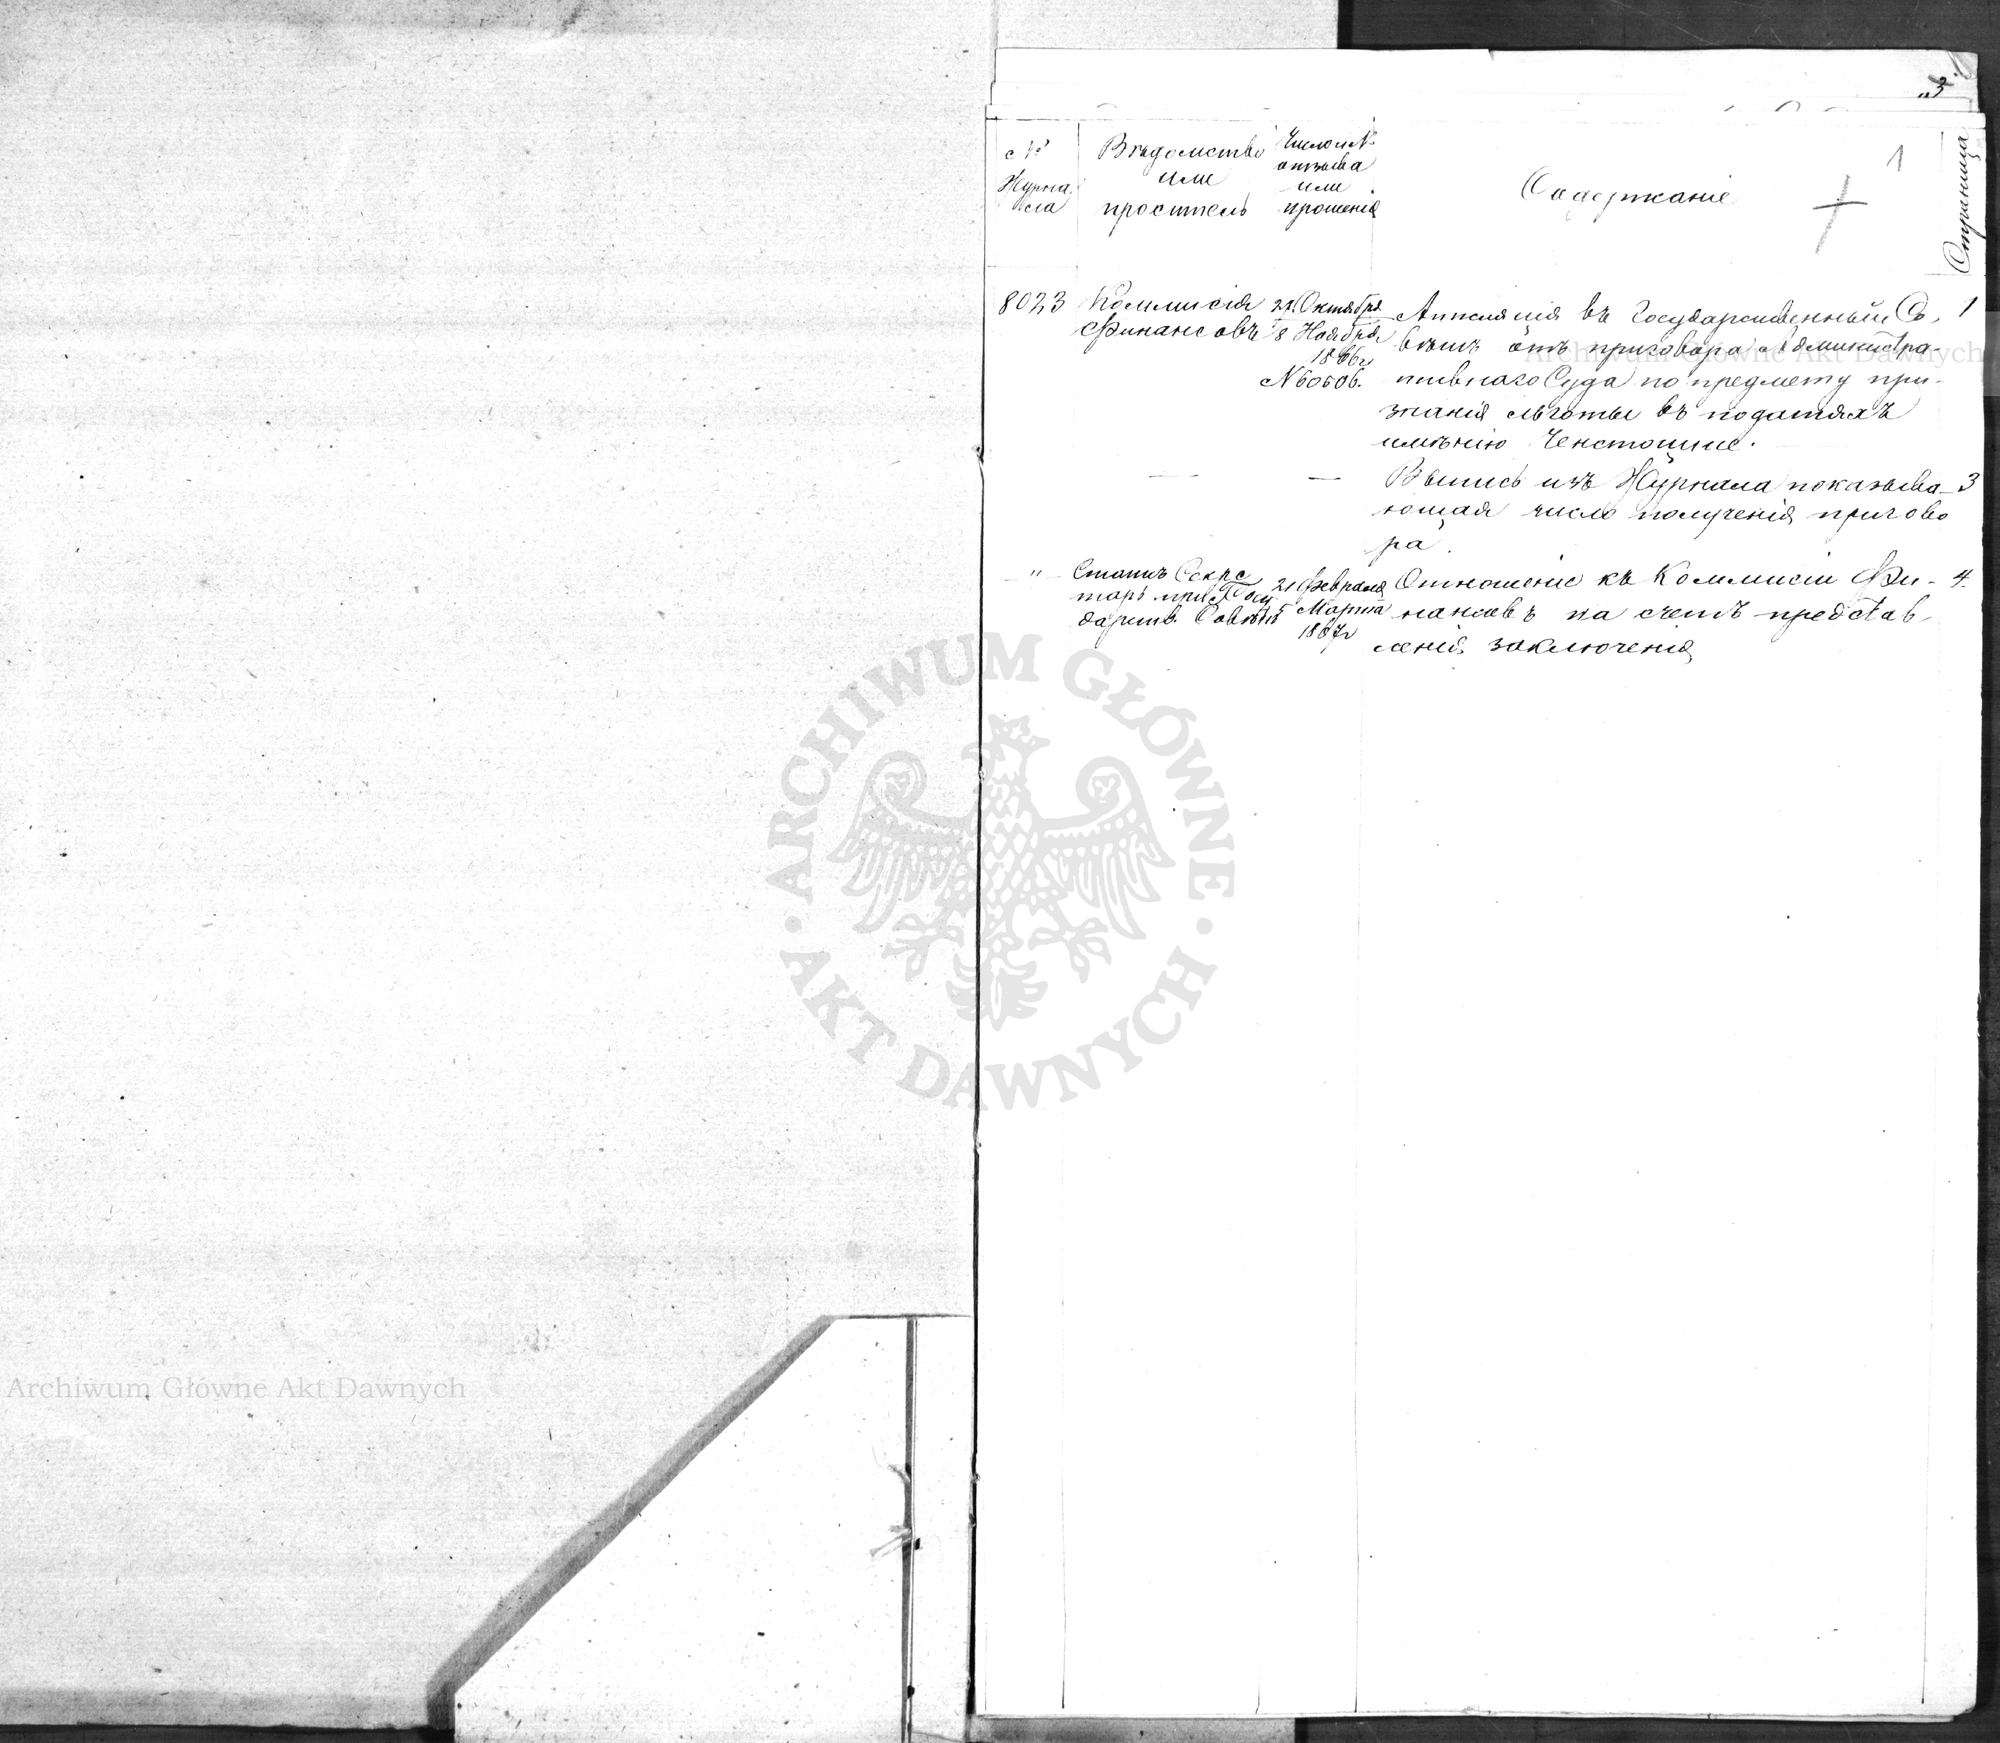 3
№ Журнала
Вѣдомство или проситель
Число и № отзыва или прошенія
Содержаніе
1
Страница
8023
Коммисія
Финансовъ
Октября
8 Ноября
1866г
№ 60606.
Аппеляція въ Государственный Со-
вѣтъ отъ приговора Администра-
тивнаго Суда по предмету при-
знанія льготы въ податяхъ
имѣнію
1
—
—
Выпись изъ Журнала показыва-
ющая число полученія пригово
ра.
3
"
Статсъ Секре
тарь при Госу
дарств. Совѣтѣ
21 Февраля
5 Марта
1867г
Отношеніе къ Коммисіи Фи-
нансовъ на счетъ представ-
ленія заключенія
4.
ARCHIWUM GŁÓWNE AKT DAWNYCH
Archiwum Główne Akt Dawnych
Archiwum Główne Akt Dawnych